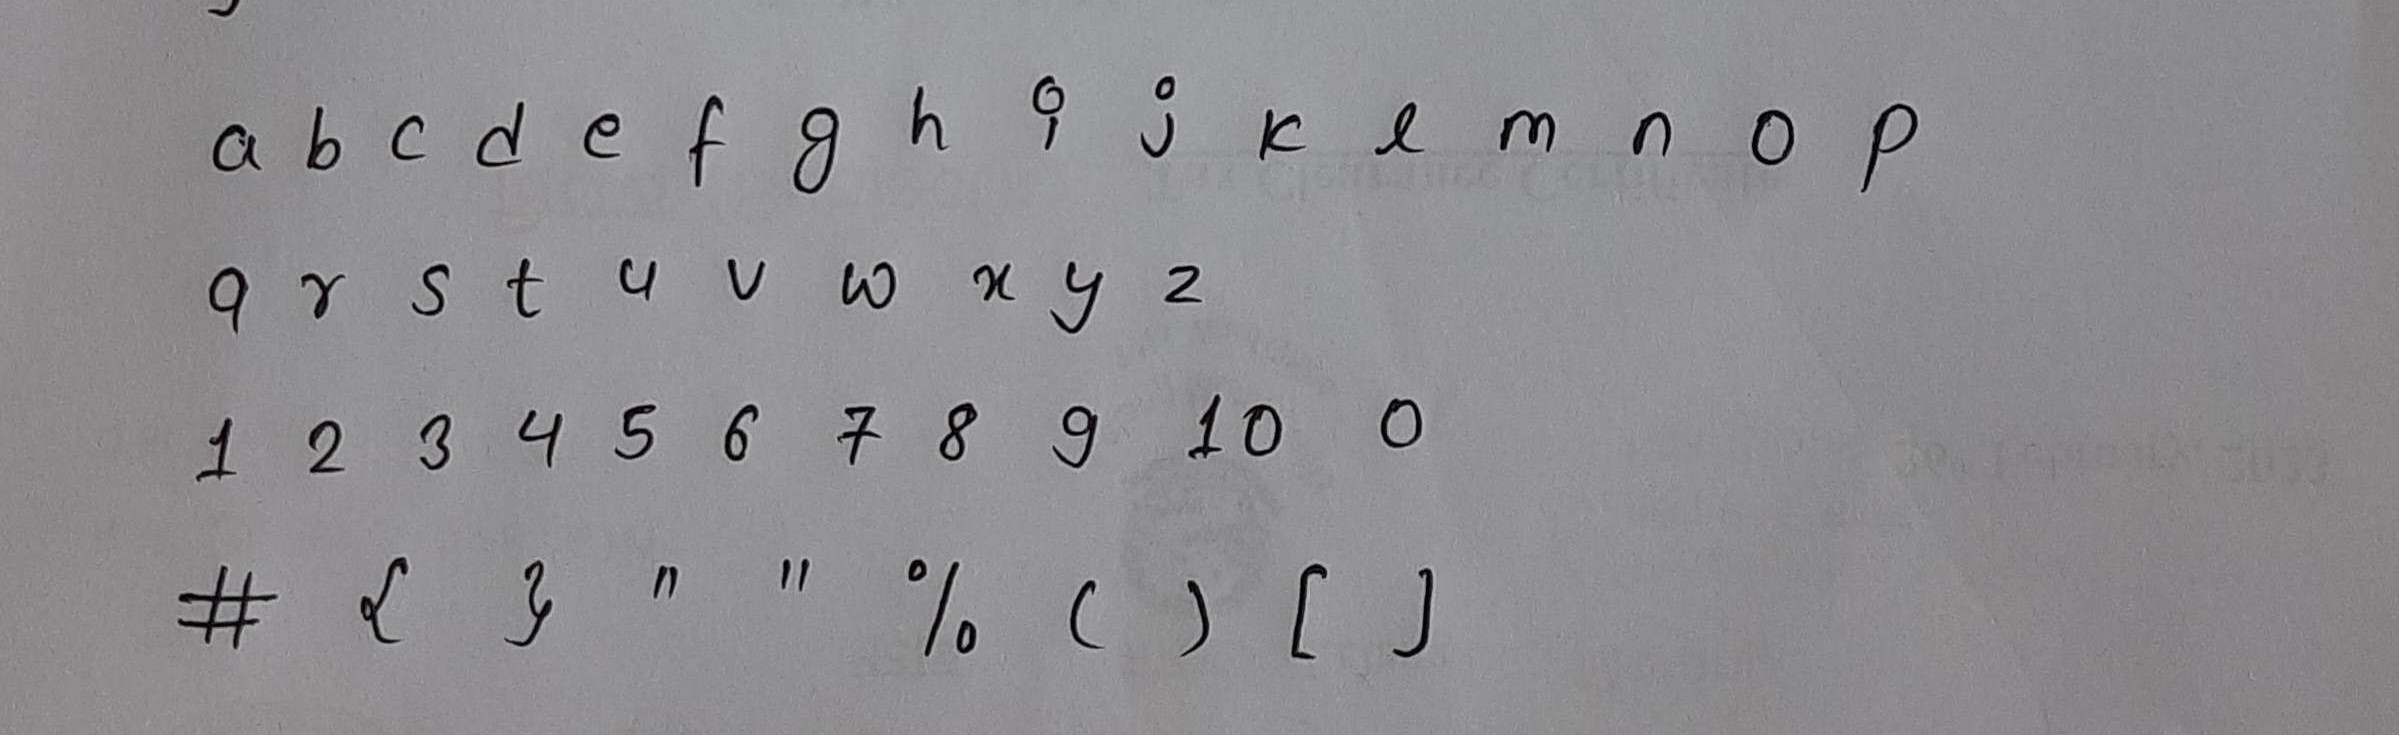 a b c d e f g h i j k l m n o p
q r s t u v w x y z
1 2 3 4 5 6 7 8 9 10 0
# { } " " % ( ) [ ]